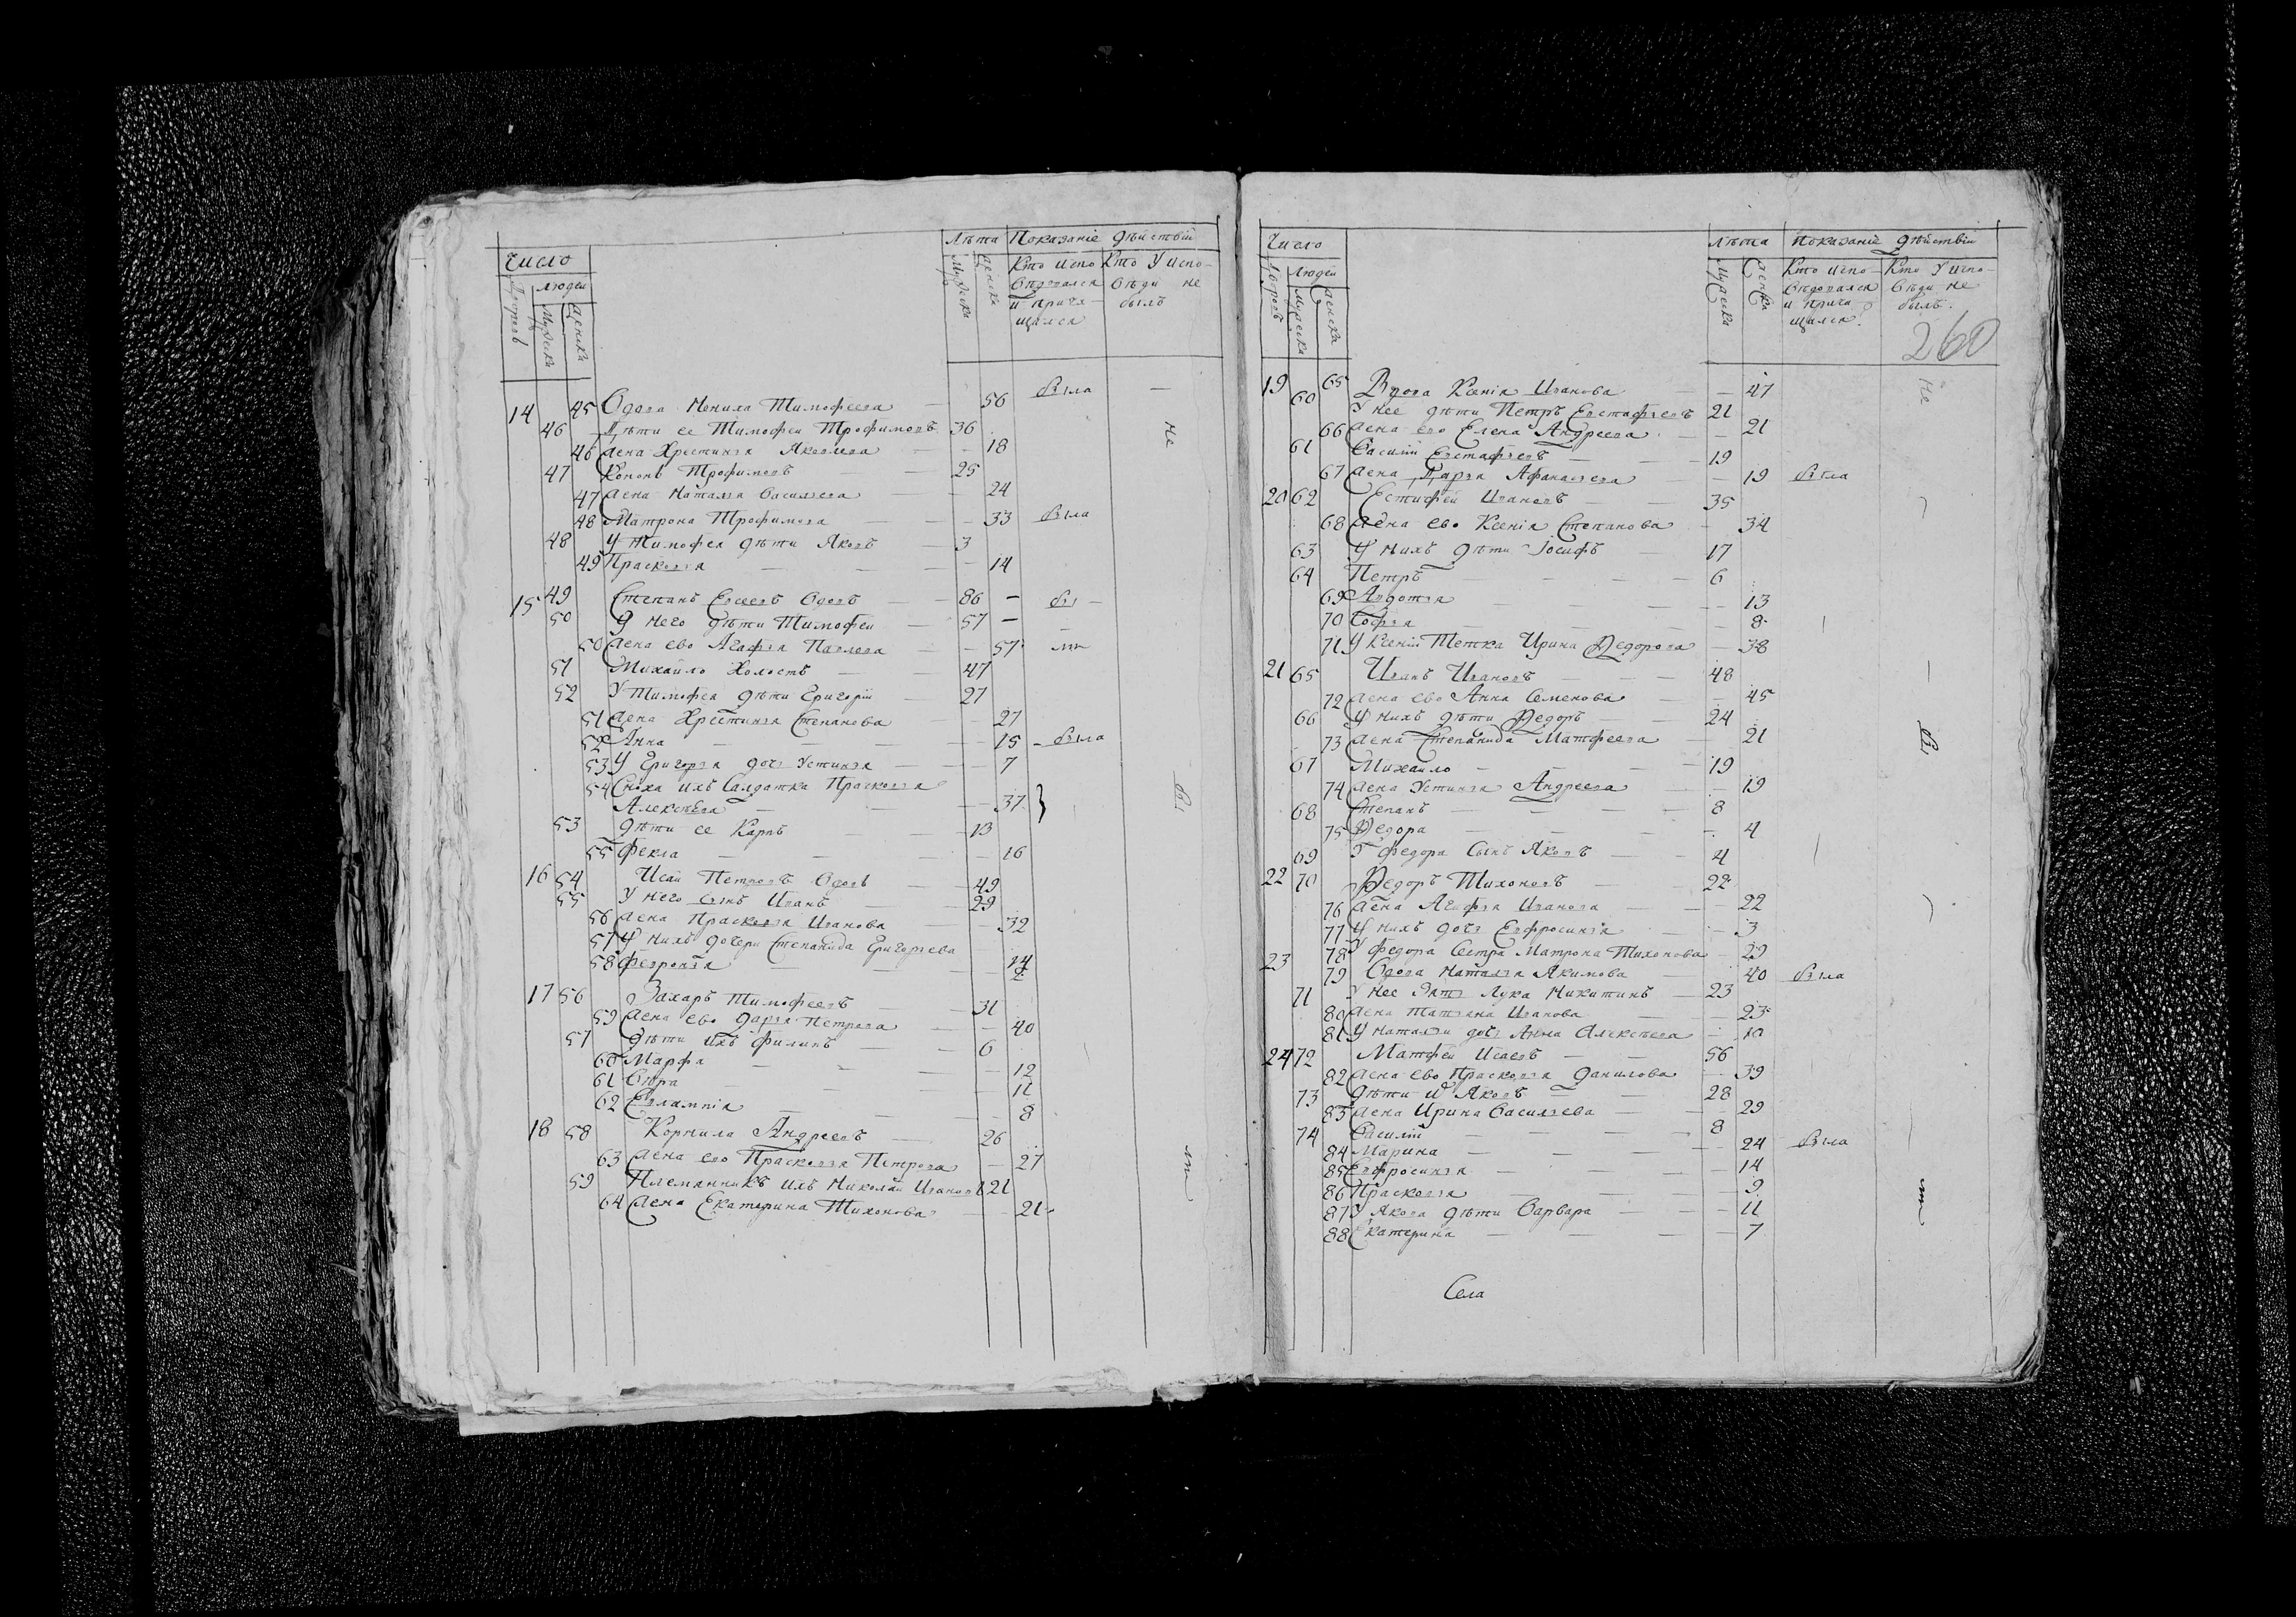 Число
Лѣта Показаніе дѣйствій
людей
Кто испо Кто у испо-
вѣдовался вѣди не
и прича- былъ
щался
Дворовъ Мужеска Женска Мужеска Женска
14 45 Вдова Ненила Тимофеева — 56 была —
46 Дѣти ее Тимофей Трофимовъ 36 не
46 жена Христинья Яковлева — 18
47 Кононъ Трофимовъ — 25
47 жена Наталья Васильева — 24
48 Матрона Трофимова — 33 была
48 У Тимофея дѣти Яковъ — 3
49 Прасковья — 14
15 49 Степанъ Евсеевъ вдовъ — 86 — бы —
50 У него дѣти Тимофей — 57 —
50 жена ево Агафья Павлева — 57 ли
51 Михайло холостъ — 47
52 У Тимофея дѣти Григорій — 27
51 жена Христинья Степанова — 27
52 Анна — 15 — была
53 У Григорья дочь Устинья — 7
54 Сноха ихъ салдатка Прасковья
Алексѣева — 37
53 дѣти ее Карпъ — 13 бы
55 Фекла — 16
16 54 Исай Петровъ вдовъ — 49
55 У него сынъ Иванъ — 29
56 жена Прасковья Иванова — 32
57 У нихъ дочери Степанида Григорьева
58 Февронья — 14
17 56 Захаръ Тимофеевъ — 31
59 жена ево Дарья Петрова — 40
57 дѣти ихъ Филипъ — 6
60 Марфа — 12
61 Вѣра — 11
62 Евлампія — 8
18 58 Корнила Андреевъ — 26
63 жена ево Прасковья Петрова — 27
59 Племянникъ ихъ Николай Ивановъ 21 ли
64 жена Екатерина Тихонова — 21
Число
Лѣта Показаніе дѣйствій
людей
Кто испо- Кто у испо
вѣдовался вѣди не
и прича былъ.
щался.
Дворовъ Мужеска Женска Мужеска Женска
260
19 65 Вдова Ксенія Иванова — 47 не
60 У нее дѣти Петръ Евстафьевъ 21
66 жена ево Елена Андреева — 21
61 Василій Евстафьевъ — 19
67 жена Дарья Афанасьева — 19 была
20 62 Евстифей Ивановъ — 35
68 жена ево Ксенія Степанова — 34
63 У нихъ дѣти Іосифъ — 17
64 Петръ — 6
69 Авдотья — 13
70 Софья — 8
71 У Ксеніи тетка Ирина Федорова — 38
21 65 Иванъ Ивановъ — 48
72 жена ево Анна Семенова — 45
66 У нихъ дѣти Федоръ — 24
73 жена Степанида Матфеева — 21 бы
67 Михайло — 19
74 жена Устинья Андреева — 19
68 Степанъ — 8
75 Федора — 4
69 У Федора сынъ Яковъ — 4
22 70 Федоръ Тихоновъ — 22
76 жена Агафья Иванова — 22
77 У нихъ дочь Евфросинья — 3
78 У Федора сестра Матрона Тихонова — 29
23 79 Вдова Наталья Якимова — 40 была
71 У нее зять Лука Никитинъ — 23
80 жена Татьяна Иванова — 23
81 У Натальи дочь Анна Алексѣева — 10
24 72 Матфей Исаевъ — 56
82 жена ево Прасковья Данилова — 39
73 дѣти их Яковъ — 28
83 жена Ирина Васильева — 29
74 Василій — 8
84 Марина — 24 была
85 Евфросинья — 14
86 Прасковья — 9
87 У Якова дѣти Варвара — 11
88 Екатерина — 7
Села